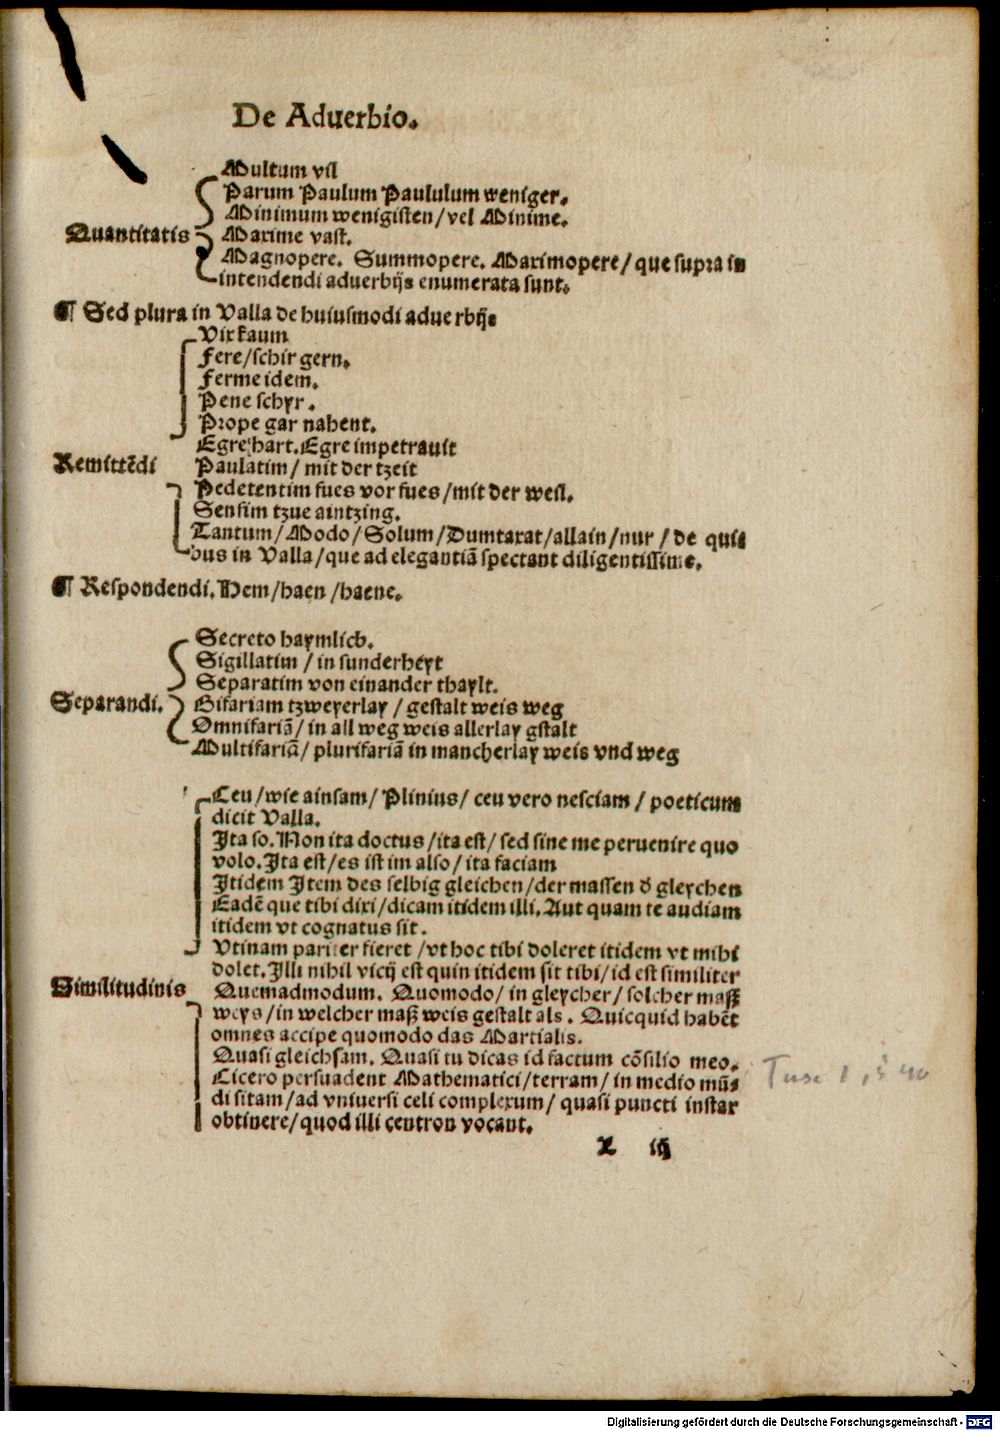 De Aduerbio.
Multum vil
Parum Paulum Paululum weniger.
Minimum wenigisten/vel Minime.
Quantitatis Maxime vast.
Magnopere. Summopere. Maximopere/que supra in
intendendi aduerbijs enumerata sunt.
¶ Sed plura in Valla de huiusmodi aduerbijs
Vix kaum
Fere/schir gern.
Ferme idem.
Pene schyr.
Prope gar nahent.
Egre hart. Egre impetrauit
Remittēdi Paulatim/ mit der tzeit
Pedetentim fues vor fues/mit der weil.
Sensim tzue aintzing.
Tantum/Modo/Solum/Dumtaxat/allain/nur/de qui-
bus in Valla/que ad elegantiā spectant diligentissime.
¶ Respondendi. Hem/haen/haene.
Secreto haymlich.
Sigillatim/in sunderheyt
Separatim von einander thaylt.
Separandi. Bifariam tzweyerlay/gestalt weis weg
Omnifariā/in all weg weis allerlay gstalt
Multifariā/plurifariā in mancherlay weis vnd weg
Ceu/wie ainsam/Plinius/ceu vero nesciam/poeticum
dicit Valla.
Ita so. Non ita doctus/ita est/sed sine me peruenire quo
volo. Ita est/es ist im also/ita faciam
Itidem Item des selbig gleichen/der massen ð gleychen
Eadē que tibi dixi/dicam itidem illi. Aut quam te audiam
itidem vt cognatus sit.
Vtinam pariter fieret/vt hoc tibi doleret itidem vt mihi
dolet. Illi nihil vicij est quin itidem sit tibi/id est similiter
Similitudinis Quemadmodum. Quomodo/in gleycher/solcher maß
weys/in welcher maß weis gestalt als. Quicquid habēt
omnes accipe quomodo das Martialis.
Quasi gleichsam. Quasi tu dicas id factum cōsilio meo.
Cicero persuadent Mathematici/terram/in medio mū-
di sitam/ad vniuersi celi complexum/quasi puncti instar
obtinere/quod illi centron vocant.
Tusc 1, § 40
X iij
Digitalisierung gefördert durch die Deutsche Forschungsgemeinschaft - DFG